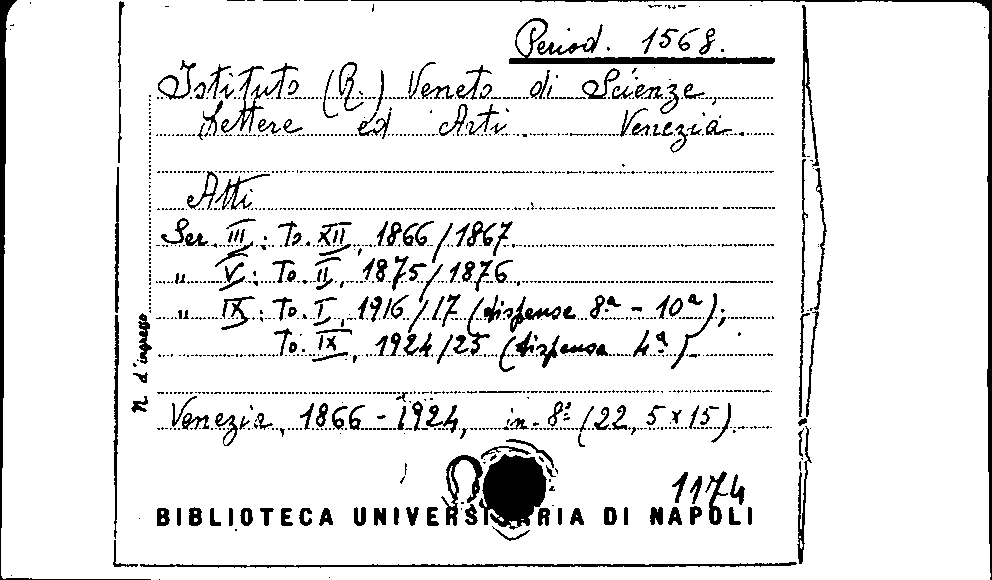 Period. 1568.
Istituto (R.) Veneto di Scienze,
Lettere ed Arti. Venezia.
Atti
Ser. III: To. XII, 1866/1867.
" V: To. II, 1875/1876.
" IX: To. I, 1916/17 (dispense 8ª - 10ª);
To. IX, 1924/25 (dispensa 4ª).
N. d'ingresso
Venezia, 1866 - 1924, in-8º (22,5 x 15).
1174
BIBLIOTECA UNIVERSITARIA DI NAPOLI